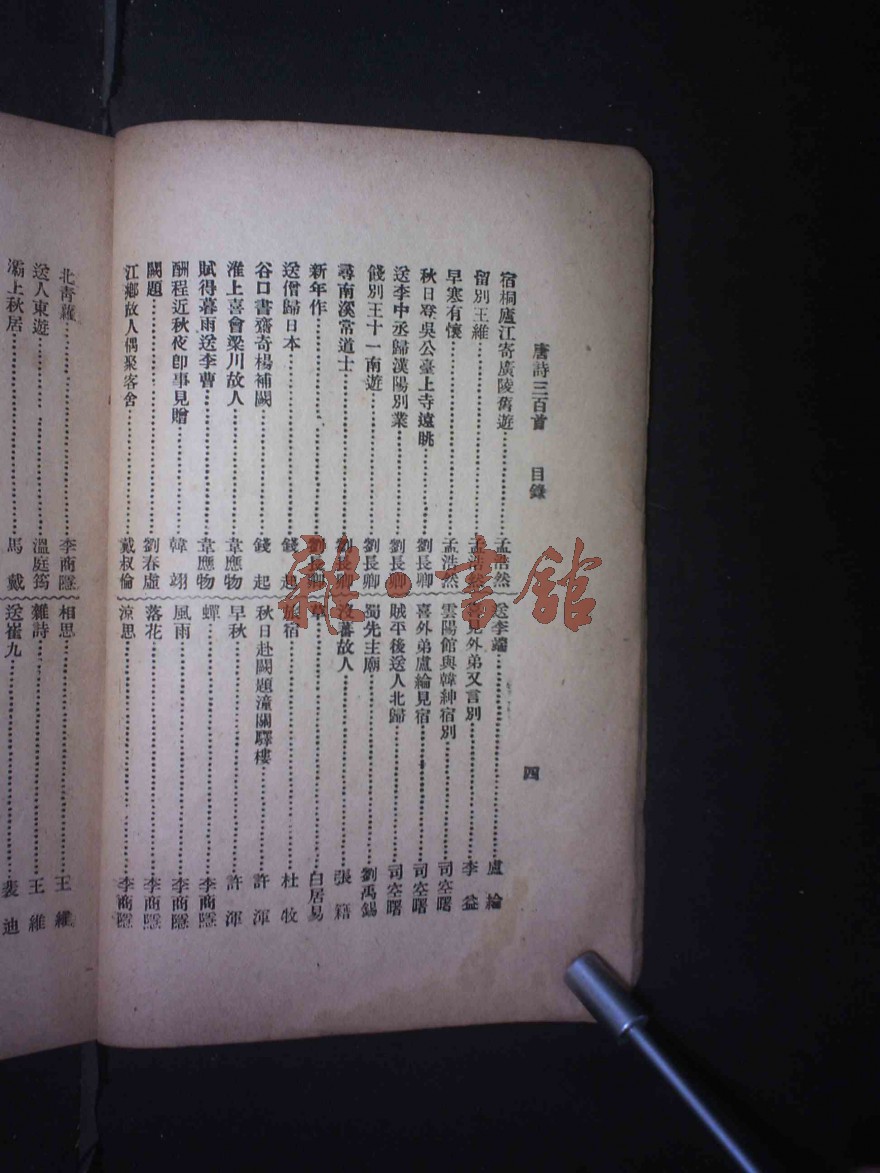 唐詩三百首 目錄 四
宿桐廬江寄廣陵舊遊 孟浩然
留別王維 孟浩然
早寒有懷 孟浩然
秋日登吳公臺上寺遠眺 劉長卿
送李中丞歸漢陽別業 劉長卿
餞別王十一南遊 劉長卿
尋南溪常道士 劉長卿
新年作 劉長卿
送僧歸日本 錢起
谷口書齋寄楊補闕 錢起
淮上喜會梁川故人 韋應物
賦得暮雨送李曹 韋應物
酬程近秋夜卽事見贈 韓翃
闕題 劉春虛
江鄉故人偶聚客舍 戴叔倫
送李端 盧綸
見外弟又言別 李益
雲陽館與韓紳宿別 司空曙
喜外弟盧綸見宿 司空曙
賊平後送人北歸 司空曙
蜀先主廟 劉禹錫
沒蕃故人 張籍
草 白居易
旅宿 杜牧
秋日赴闕題潼關驛樓 許渾
早秋 許渾
蟬 李商隱
風雨 李商隱
落花 李商隱
涼思 李商隱
北青蘿 李商隱
送人東遊 溫庭筠
灞上秋居 馬戴
相思 王維
雜詩 王維
送崔九 裴迪
雜·書館